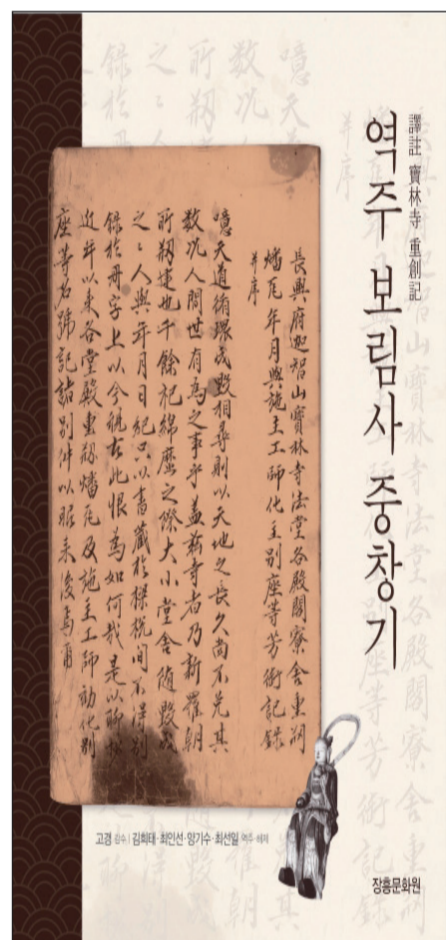 譯註 寶林寺 重創記
역주 보림사 중창기
長興府迦智山寶林寺法堂各殿閣寮舍重刱
燔瓦年月與施主工師化主別座等芳衘記錄
并序
噫天道循環成毀相尋則以天地之長久尚不免其
數况人間世有爲之事乎盖茲寺者乃新羅朝
所刱建也千餘祀綿歷之際大小堂舍隨毀成
之之人與年月日紀只以書藏於樑梲間不得別
錄於冊字上以今視古此恨爲如何哉是以聊於
近年以來各堂殿重刱燔瓦及施主工師勸化別
座等名號記諸別件以眎来後焉爾
고경 감수 | 김희태·최인선·양기수·최선일 역주·해제
장흥문화원